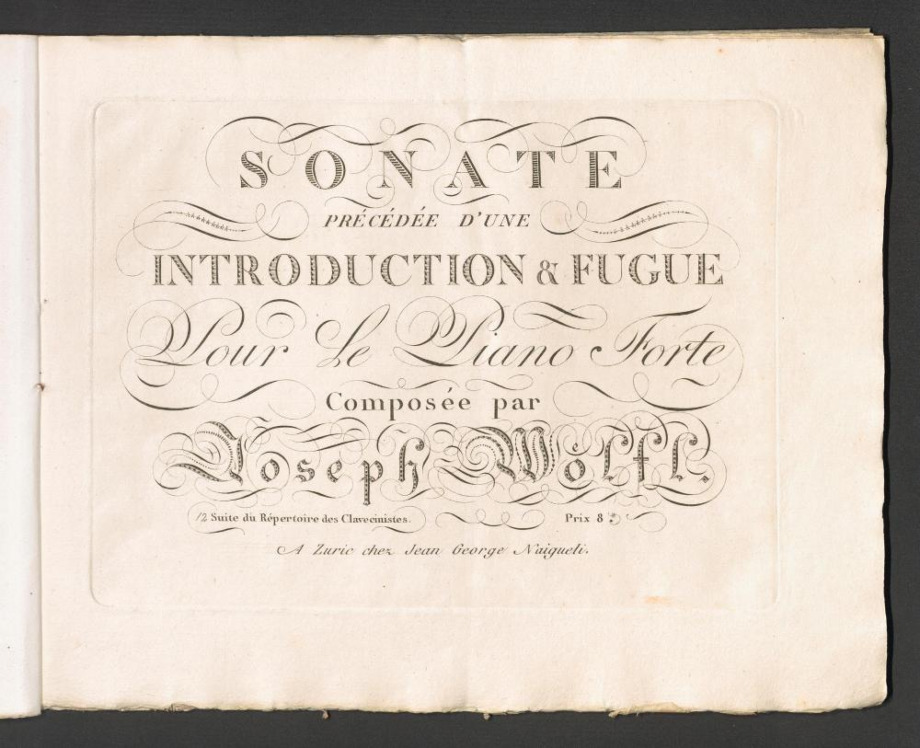 SONATE
PRÉCÉDÉE D'UNE
INTRODUCTION & FUGUE
Pour Le Piano Forte
Composée par
Joseph Wölfl.
12 Suite du Répertoire des Clavecinistes. Prix 8
A Zuric chez Jean George Naigueli.